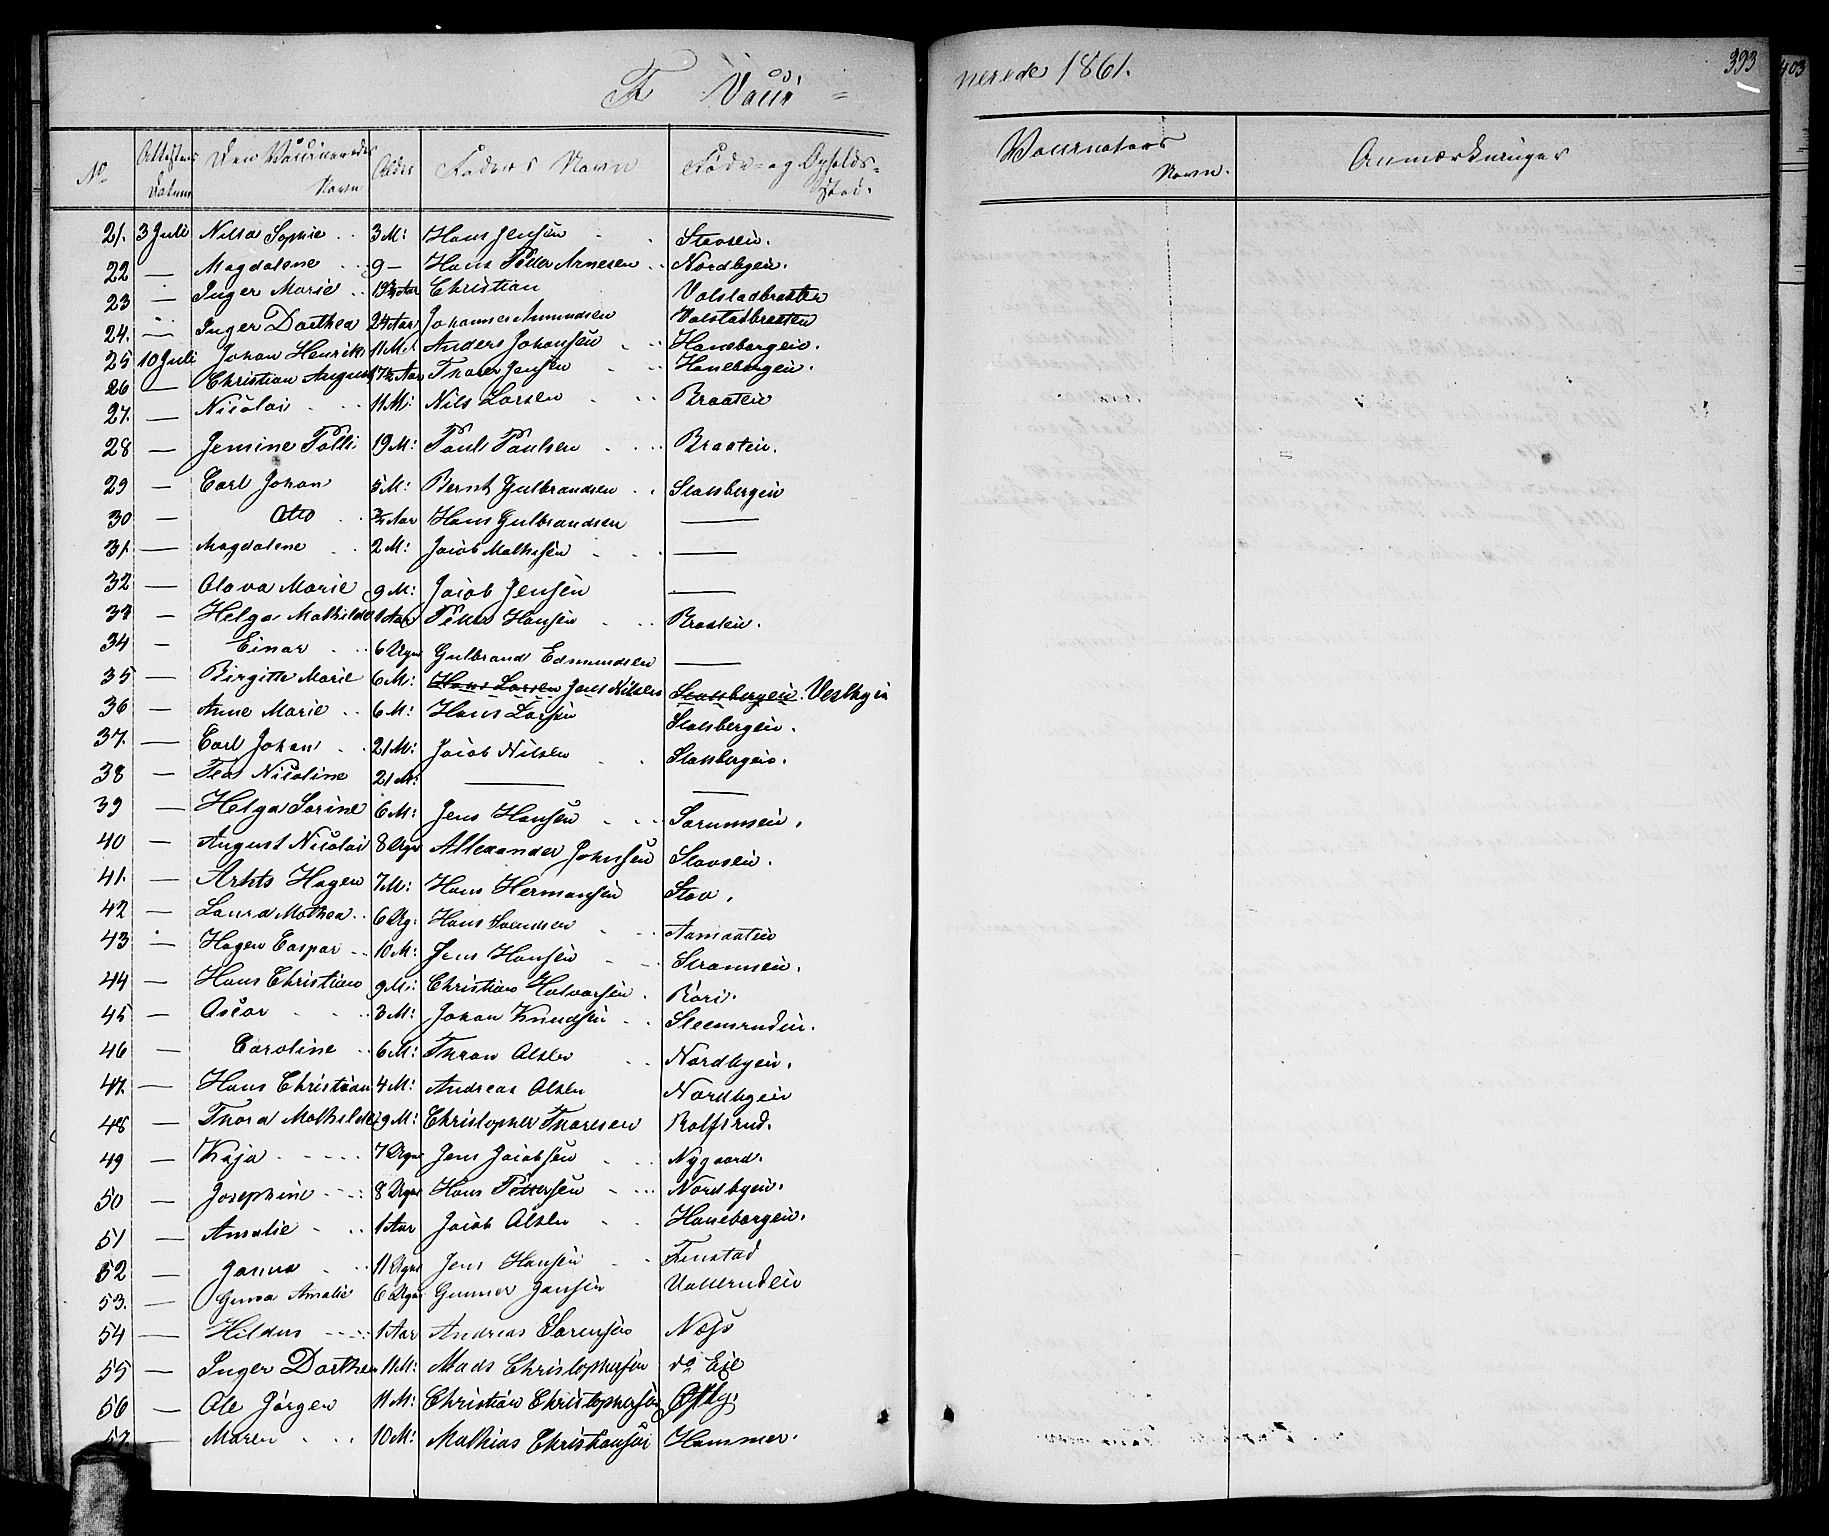 F. Vacci = nerede 1861. 393 403
No Attestens Datum Den Vaccineredes Navn Alder Faders Navn Føde- og Opholds-Sted. Vaccinators Navn. Anmærkninger
21. 3 Juli Nilla Sophie 3 M: Hans Jensen Stovsein.
22 — Magdalene 9 — Hans Peder Arnesen Nordbyein.
23 — Inger Marie 19¾ Aar Christian Volstadbraaten
24. — Inger Dorthea 2¾ Aar Johannes Amundsen Volstadbraaten
25 10 Juli Johan Henrik 11 M. Anders Johansen Haneborgein.
26 — Christian August 17½ Aar Thorer Jensen Haneborgein.
27. — Nicolai 11 M: Nils Larsen Braaten
28 — Jensine Polli 19 M: Paul Paulsen Braaten.
29 — Carl Johan 5 M: Bernt Gulbrandsen Skalsbergein
30 — Otto ¾ Aar Hans Gulbrandsen —
31. — Magdalene 2 M: Jacob Mathisen —
32 — Olava Marie 9 M: Jacob Jensen —
33 — Helga Mathilde 1 Aar Peter Hansen Braaten.
34 — Einar 6 Uger Gulbrand Edmundsen —
35 — Birgitte Marie 6 M: Hans Larsen Jacob Nilsen Skalsbergein. Vestbyein
36 — Anne Marie 6 M: Hans Larsen Skalsbergein.
37. — Carl Johan 21 M: Jacob Nilsen Skalsbergein.
38 — Thea Nicoline 21 M: — —
39 — Helga Sorine 6 M: Jens Hansen Sorumsein.
40 — August Nicolai 8 Uger Allexander Johnsen Stovsein.
41. — Arhts Hagen 7 M: Hans Hermansen Stov.
42 — Laura Mathea 6 Ug: Hans Svendsen Aamaaten
43 — Hagen Caspar 10 M: Jens Hansen Stromsein.
44 — Hans Christian 9 M: Christian Halvorsen Kori.
45 — Oscar 3 M: Johan Knudsen Steensrudein.
46 — Caroline 6 M: Thron Olsen Nordbyein.
47. — Hans Christian 4 M: Andreas Olsen Nordbyein
48 — Thora Mathilde 9 M: Christopher Thoresen Rolfsrud.
49 — Kaja 7 Uger Jens Jacobsen Nygaard.
50 — Josephine 8 Uger Hans Pettersen Nordbyein.
51 — Amalie 1 Aar Jacob Olsen Haneborgein.
52 — Janna 11 Uger Jens Hansen Finstad
53. — Gina Amalie 6 Uger Gunner Jansen Vallerudein
54 — Hildus 1 Aar Andreas Sorensen Næss
55 — Inger Dorthea 11 M: Mads Christophersen do Eie
56 — Ole Jørgen 11 M: Christian Christophersen Østby
57. — Maren 10 M: Mathias Christiansen Hammer.